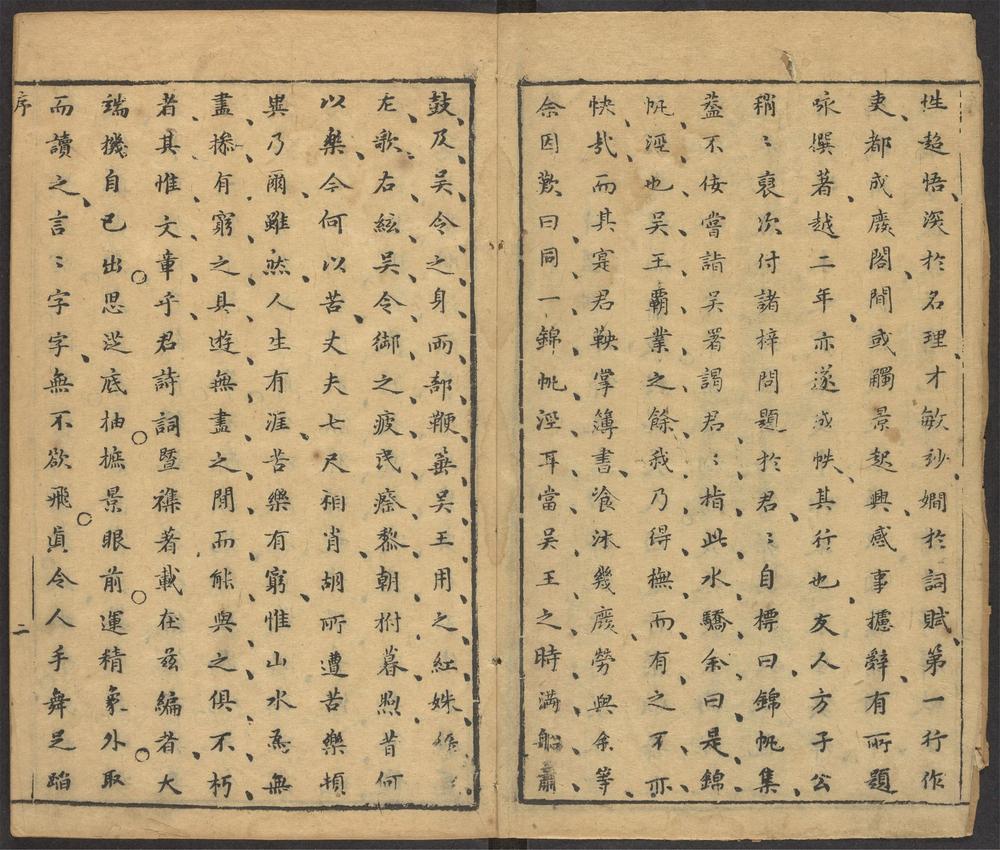 性超悟深於名理才敏玅嫺於詞賦第一行作
吏都成廢閣間或觸景起興感事攄辭有所題
咏撰著越二年亦遂成帙其行也友人方子公
稍〻裒次付諸梓問題於君〻自標曰錦帆集
蓋不佞嘗詣吴署謁君〻指此水驕余曰是錦
帆涇也吴王霸業之餘我乃得撫而有之不亦
快哉而其寔君鞅掌簿書飡沐幾廢勞與余等
余因歎曰同一錦帆涇耳當吴王之時滿船蕭
鼓及吴令之身而部鞭菙吴王用之紅姝
左歌右絃吴令御之疲氓瘵黎朝拊暮煦昔何
以樂今何以苦丈夫七尺相肖胡所遭苦樂頓
異乃爾雖然人生有涯苦樂有窮惟山水為無
盡搽有窮之具遊無盡之間而能與之俱不朽
者其惟文章乎君詩詞暨襍著載在兹編者大
端機自己出思從底抽摭景眼前運精象外取
而讀之言〻字字無不欲飛真令人手舞足蹈
序
二